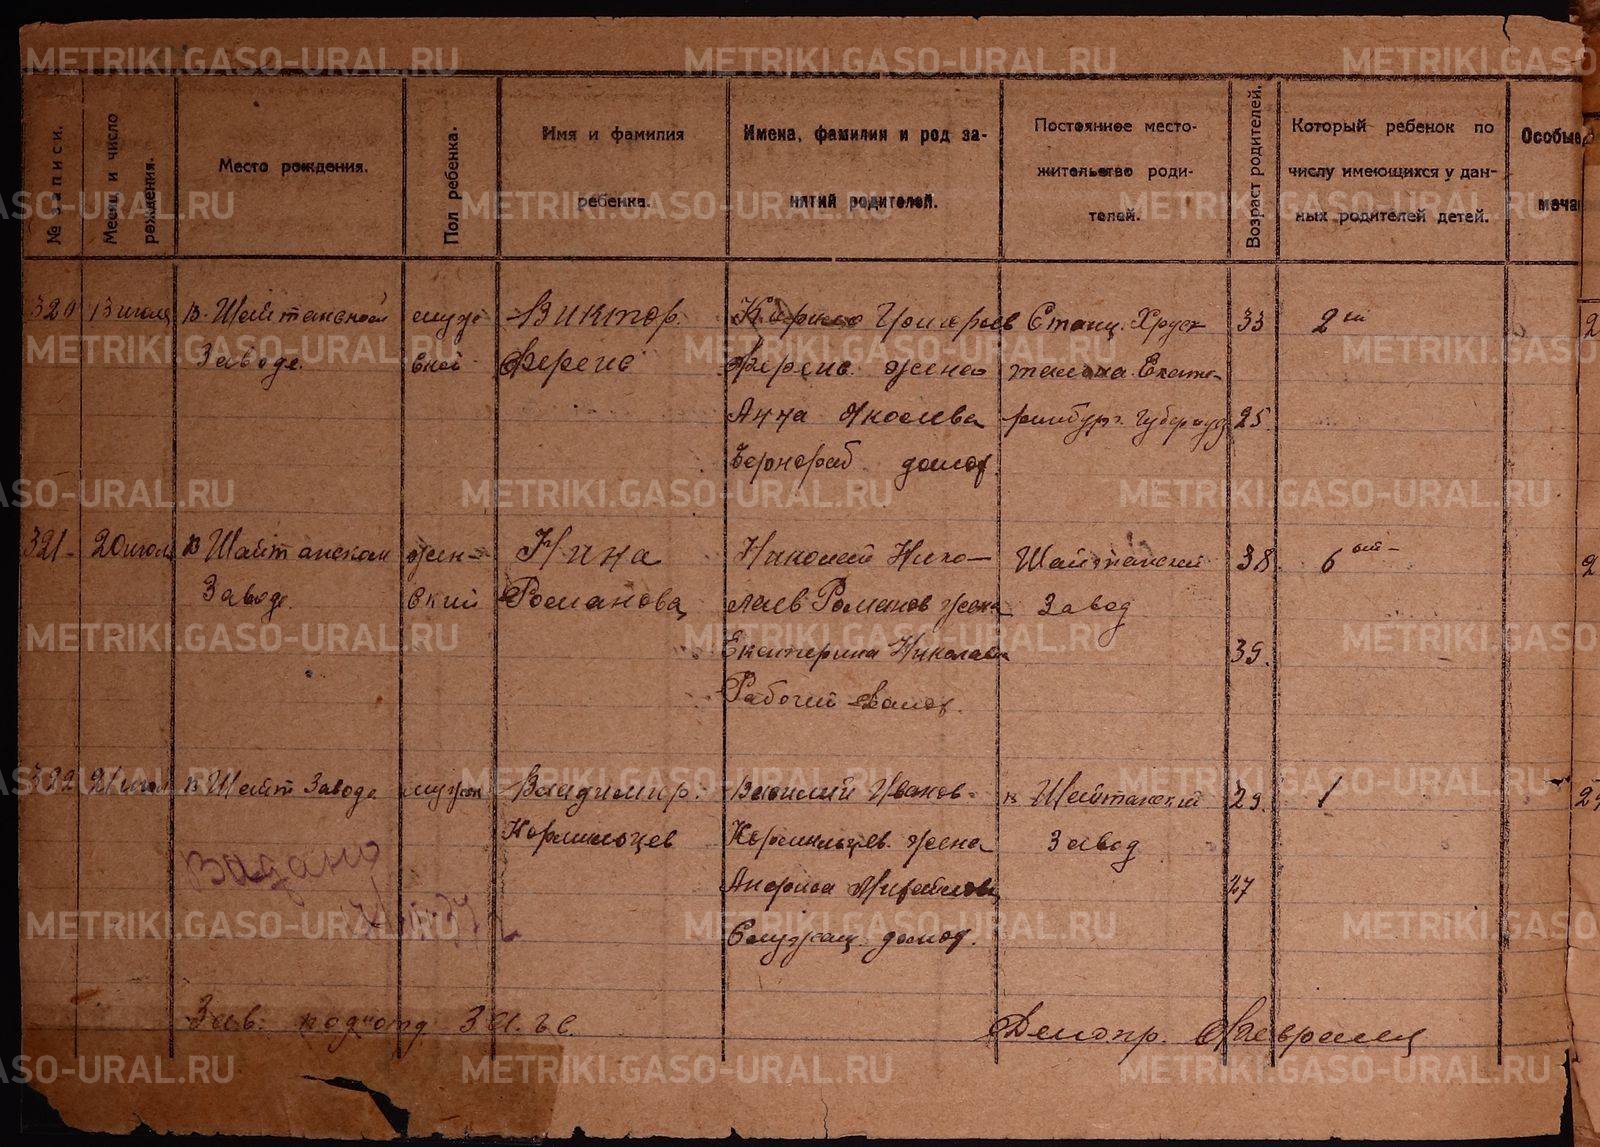 METRIKI.GASO-URAL.RU METRIKI.GASO-URAL.RU METRIKI.GASO
№ записи.
Месяц и число рождения.
Место рождения.
Пол ребенка.
Имя и фамилия
ребенка.
Имена, фамилии и род за-
нятий родителей.
Постоянное место-
жительство роди-
телей.
Возраст родителей.
Который ребенок по
числу имеющихся у дан-
ных родителей детей.
Особые
меча
320
13 июля
в Шайтанском
Заводе.
муж
ской
Виктор.
Ференс
Григорьев
Ференс жена
Анна Яковлева
Чернораб домох.
Станц. Хруст
Екате-
ринбург. Губерния
33
25.
2 ой
321
20 июля
в Шайтанском
Заводе.
жен-
ский
Нина
Романова
Николай Нико-
лаев Романов жена
Екатерина Николаев
Рабочий домох.
Шайтанский
Завод
38
39.
6 ой
322
21 июля
в Шайт Заводе
мужск
Владимир.
Кормильцев
Василий Иванов
Кормильцев. жена
Анфиса Михайлова
Служащ домох.
в Шайтанский
Завод
29.
27
1
Зав. подотд. ЗАГС.
Делопр.